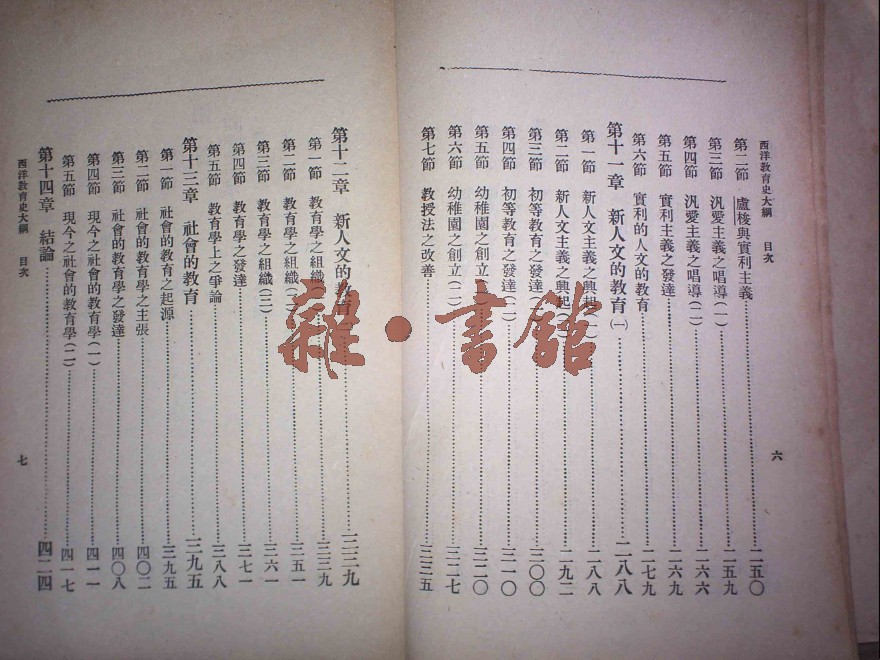 西洋教育史大綱 目次 六
第二節 盧梭與實利主義 二五〇
第三節 汎愛主義之唱導(一) 二五九
第四節 汎愛主義之唱導(二) 二六六
第五節 實利主義之發達 二六九
第六節 實利的人文的教育 二七九
第十一章 新人文的教育(一) 二八八
第一節 新人文主義之興起(一) 二八八
第二節 新人文主義之興起 二九二
第三節 初等教育之發達(一) 三〇〇
第四節 初等教育之發達(二) 三一〇
第五節 幼稚園之創立(一) 三二〇
第六節 幼稚園之創立(二) 三二七
第七節 教授法之改善 三三五
第十二章 新人文的教育 三三九
第一節 教育學之組織 三三九
第二節 教育學之組織(二) 三五一
第三節 教育學之組織(三) 三六一
第四節 教育學之發達 三七一
第五節 教育學上之爭論 三八八
第十三章 社會的教育 三九五
第一節 社會的教育之起源 三九五
第二節 社會的教育學之主張 四〇二
第三節 社會的教育學之發達 四〇八
第四節 現今之社會的教育學(一) 四一一
第五節 現今之社會的教育學(二) 四一七
第十四章 結論 四二四
西洋教育史大綱 目次 七
雜·書館